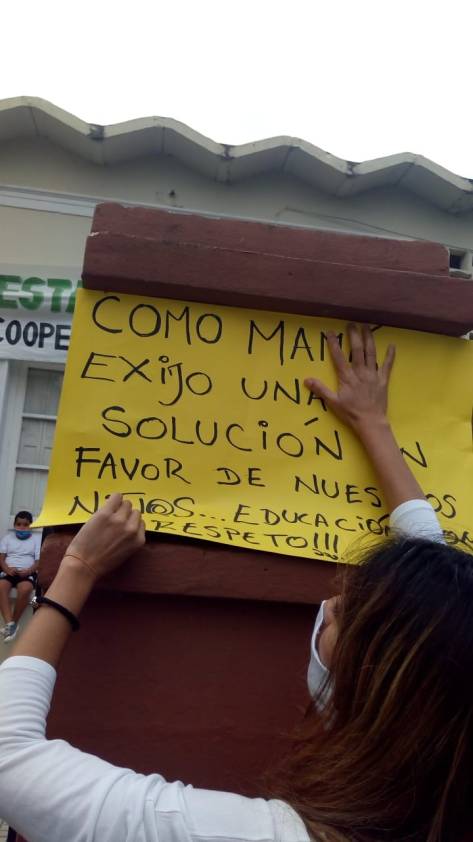 ESTA
COOPE
COMO MAMÁ
EXIJO UNA
SOLUCIÓN
FAVOR DE
NIÑ@S... EDUCACIÓN
RESPETO!!!